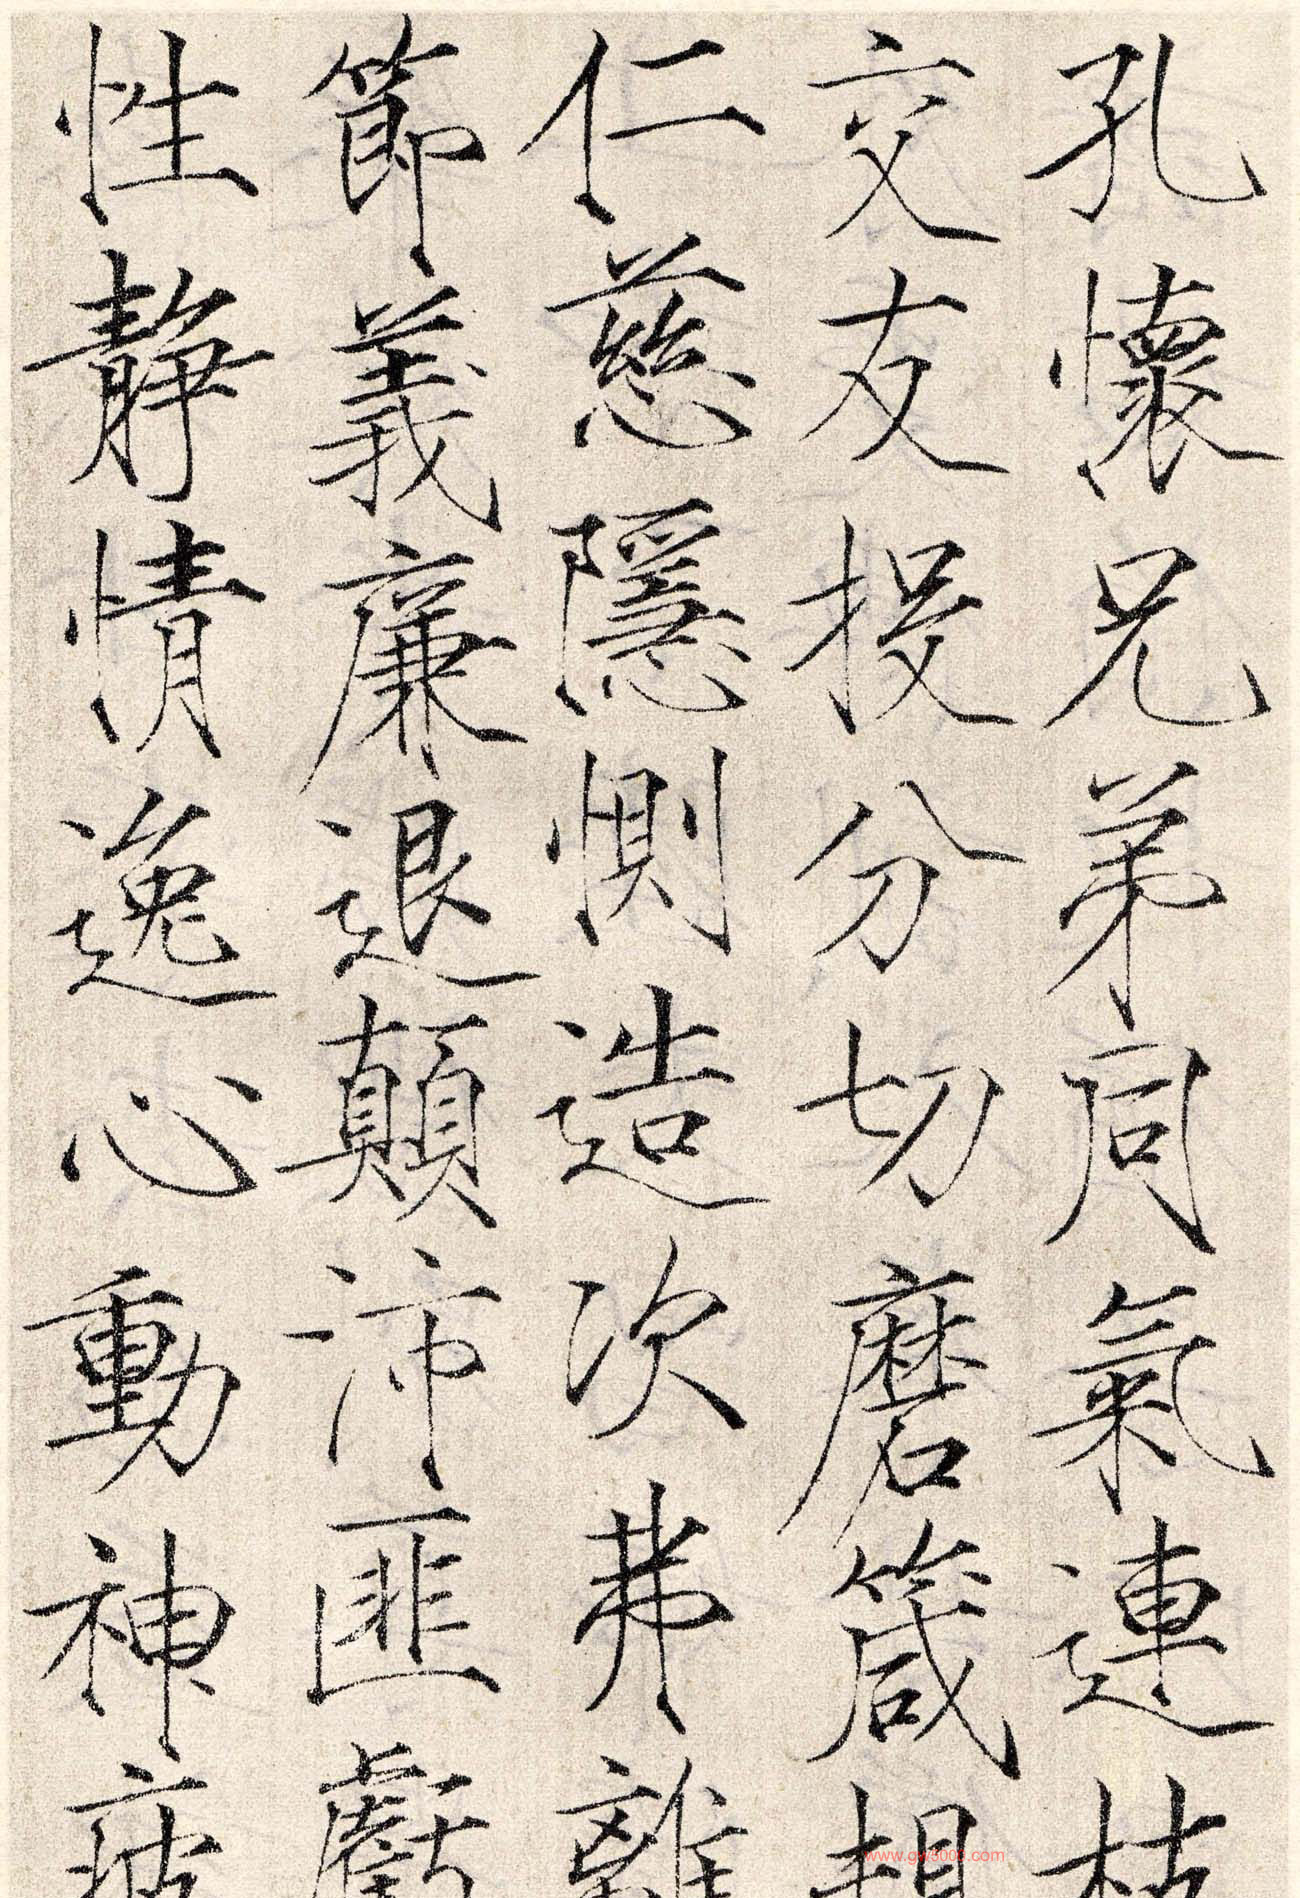 孔懷兄弟同氣連枝
交友投分切磨箴規
仁慈隱惻造次弗離
節義廉退顛沛匪虧
性靜情逸心動神疲